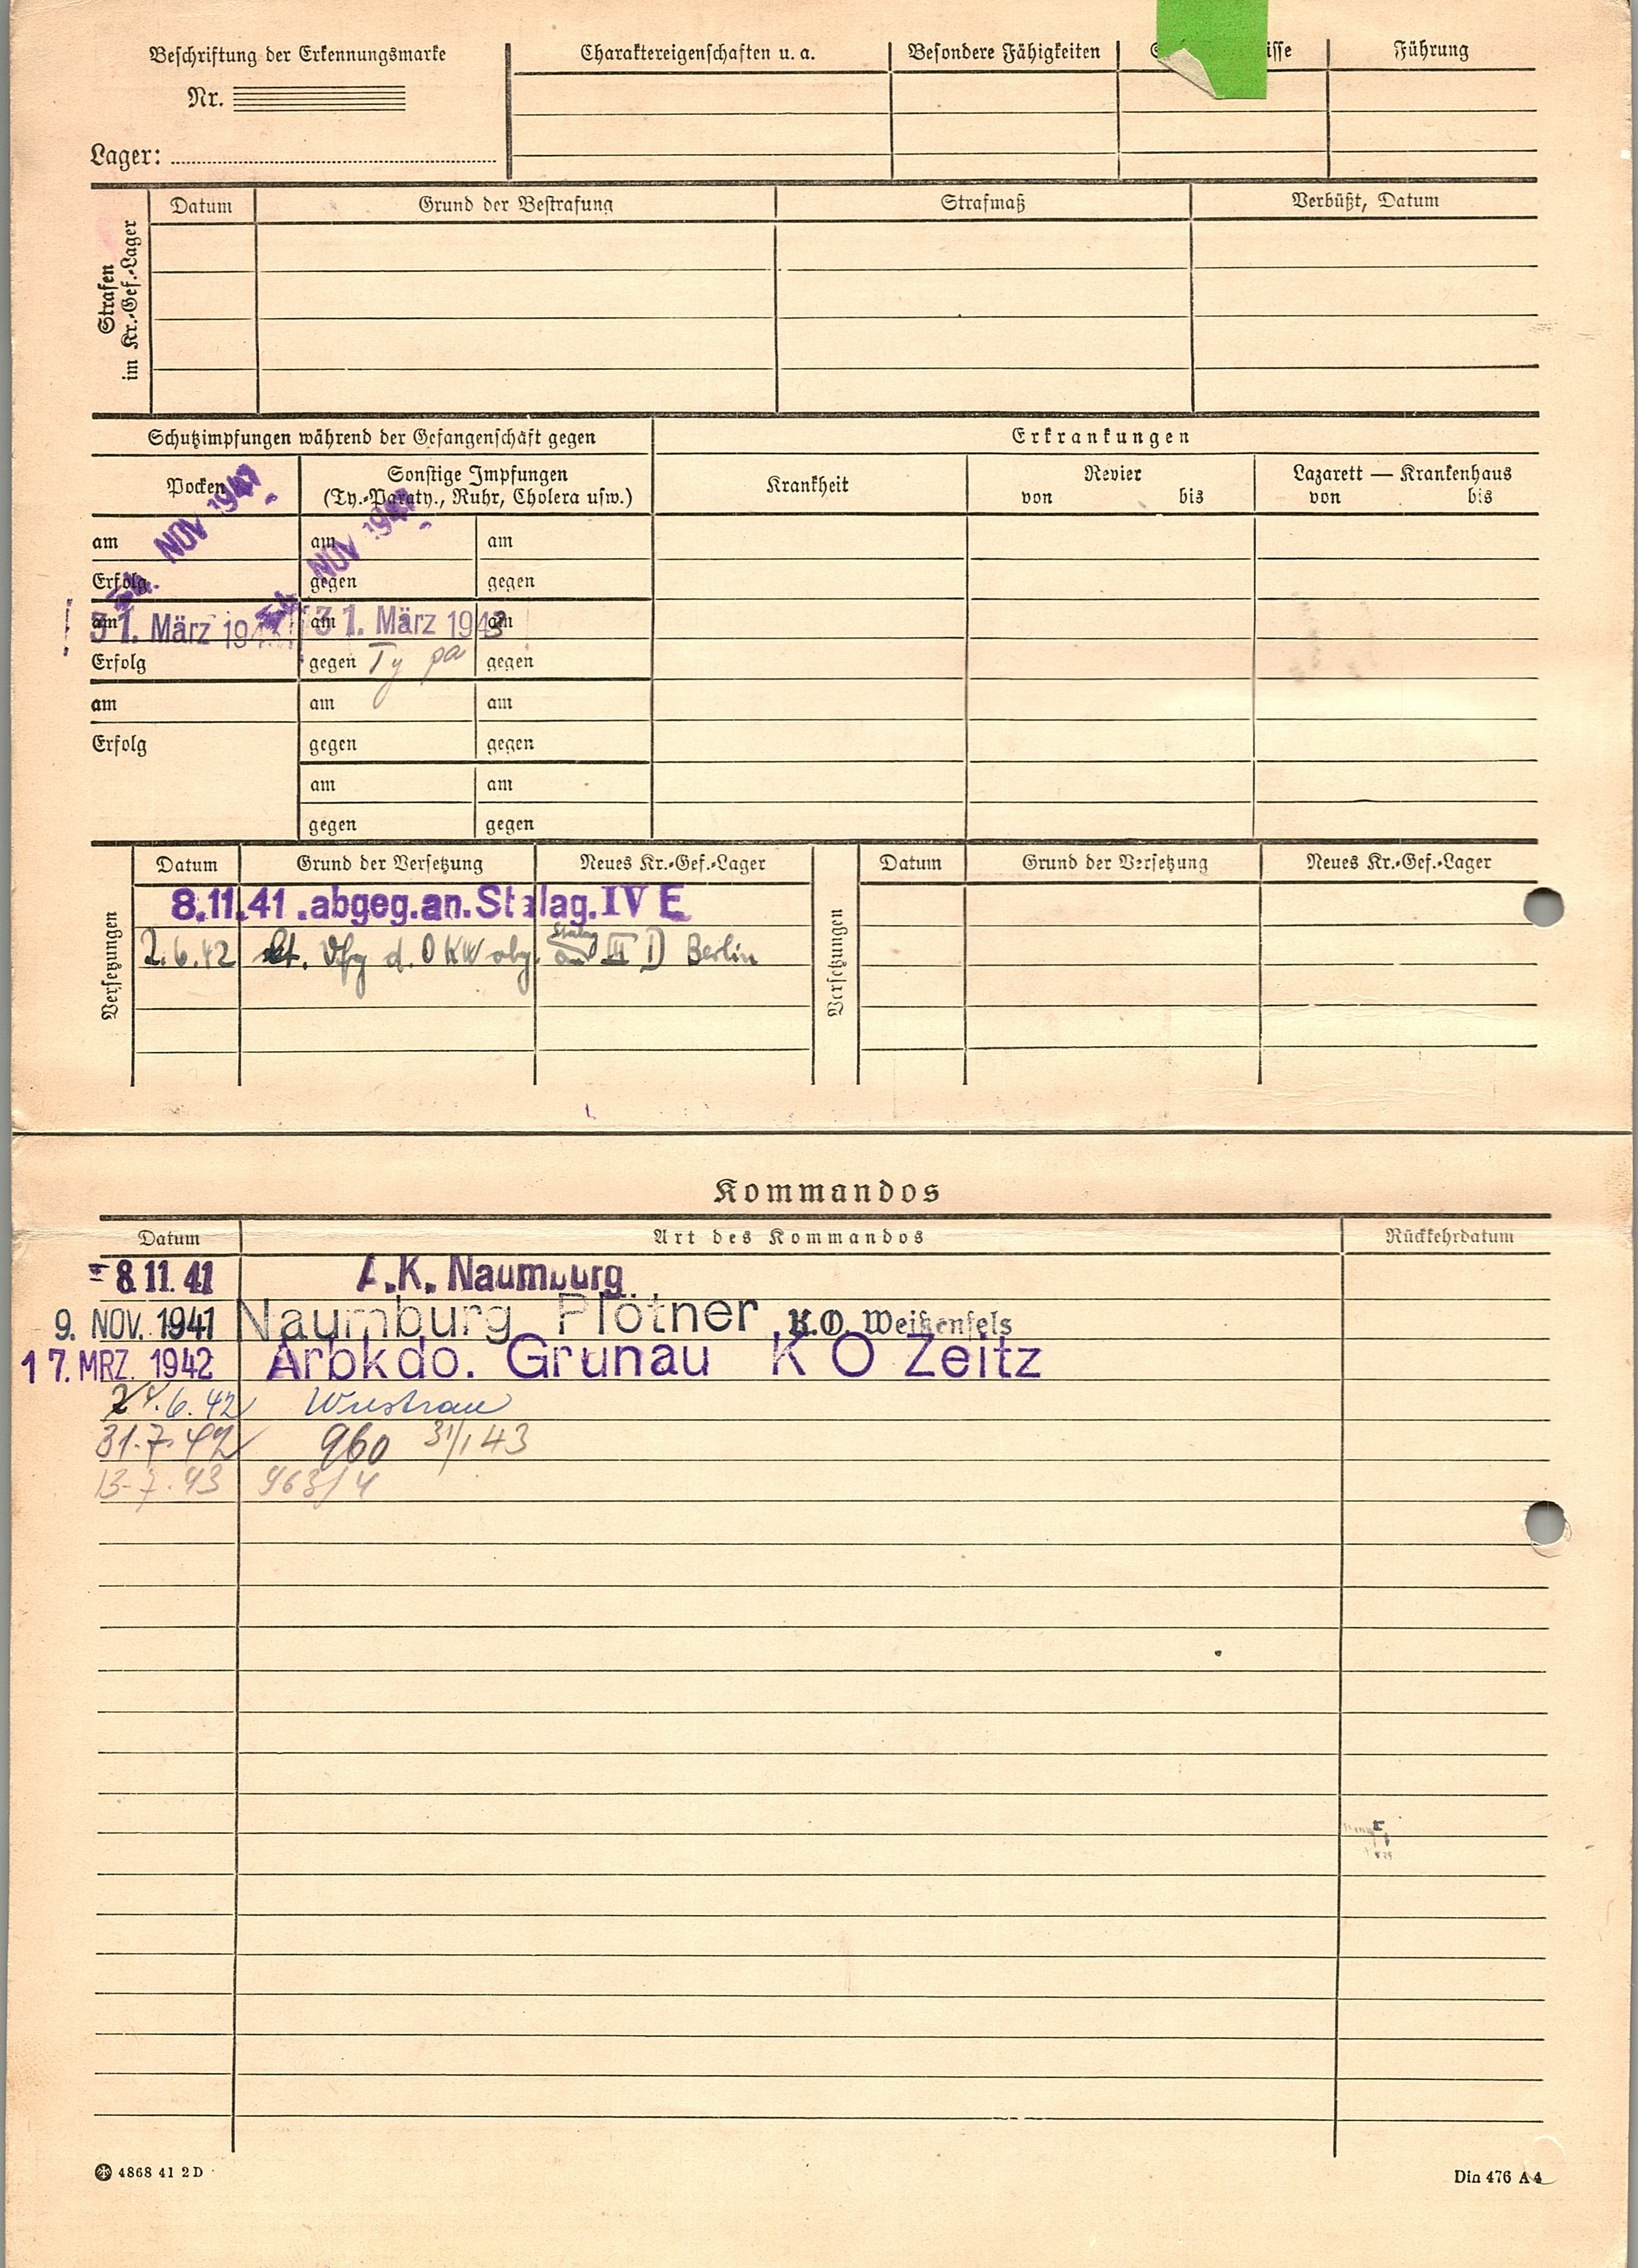 Beschriftung der Erkennungsmarke
Nr.
Lager:
Charaktereigenschaften u. a.
Besondere Fähigkeiten
Führung
Strafen im Kr.-Gef.-Lager
Datum
Grund der Bestrafung
Strafmaß
Verbüßt, Datum
Schutzimpfungen während der Gefangenschaft gegen
Erkrankungen
Pocken
Sonstige Impfungen
(Ty.-Paraty., Ruhr, Cholera usw.)
Krankheit
Revier
von bis
Lazarett — Krankenhaus
von bis
NOV 1941
NOV 1941
am am am
Erfolg gegen gegen
am am am
31. März 194 31. März 1943
Erfolg gegen Ty pa gegen
am am am
Erfolg gegen gegen
am am
gegen gegen
Versetzungen
Datum Grund der Versetzung Neues Kr.-Gef.-Lager
8.11.41 .abgeg.an.Stalag.IV E
2.6.42 lt. Vfg d. OKW abg. an Stalag III D Berlin
Versetzungen
Datum Grund der Versetzung Neues Kr.-Gef.-Lager
Kommandos
Datum Art des Kommandos Rückkehrdatum
8.11.41 A.K. Naumburg
9. NOV. 1941 Naumburg Plötner K.O. Weißenfels
17. MRZ. 1942 Arbkdo. Grunau K O Zeitz
6.42 Wustrau
31.7.42 960 31/1 43
13.7.43 963/4
4868 41 2 D
Din 476 A 4